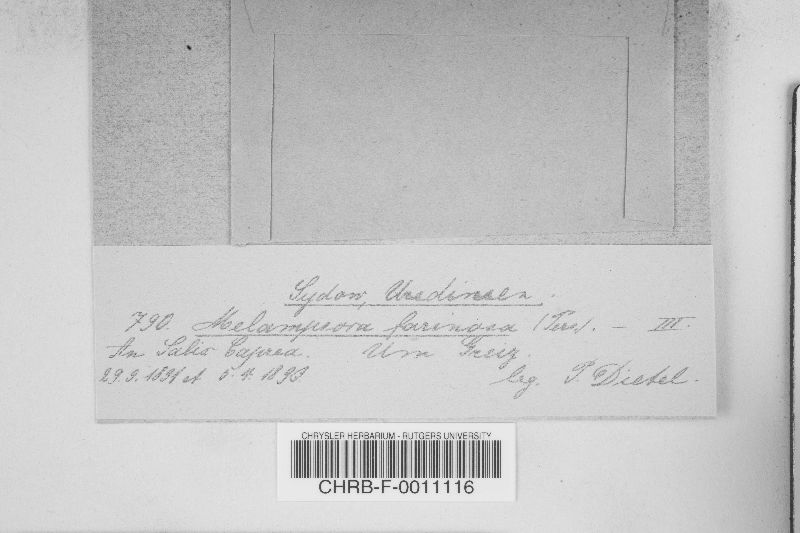 Sydow, Uredineen.
790. Melampsora farinosa (Pers). – III.
An Salix Caprea. Um Greiz.
29.9.1891 et 5.4.1893 leg. P. Dietel.
CHRYSLER HERBARIUM - RUTGERS UNIVERSITY
CHRB-F-0011116